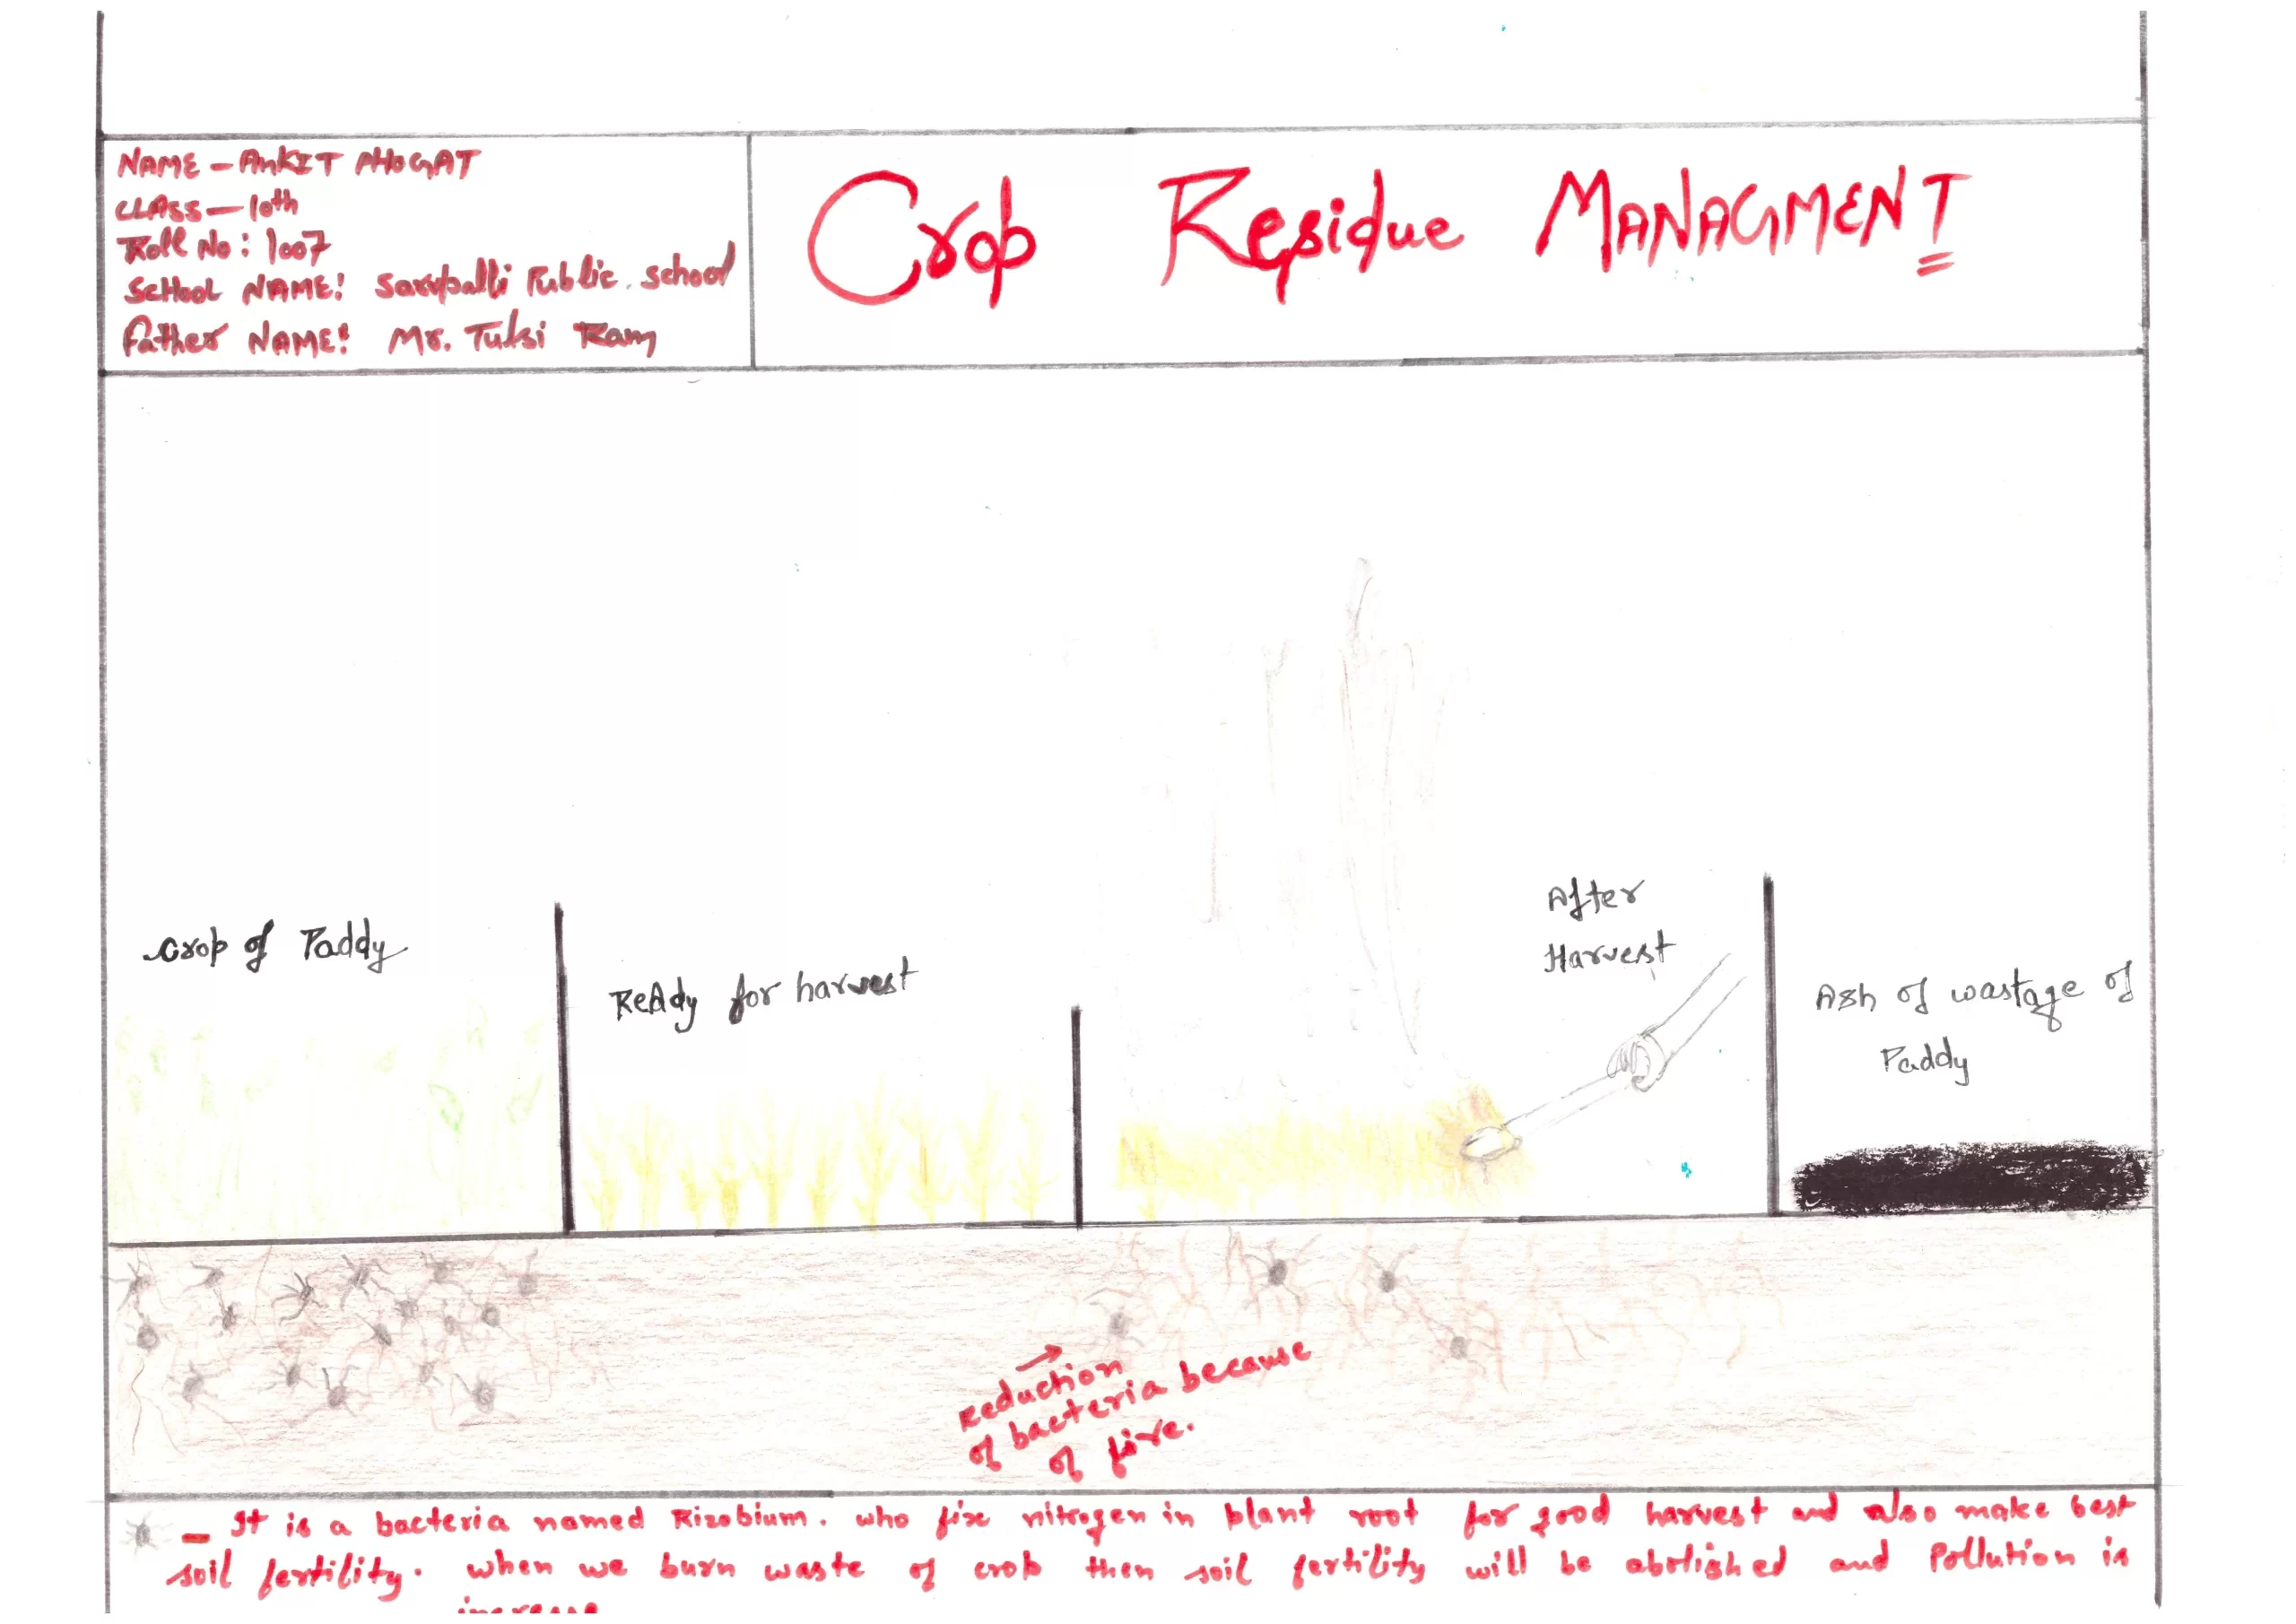 NAME - ANKIT PHOGAT
CLASS - 10th
Roll No : 1007
School NAME: Sarvpalli Public. school
Father NAME: Mr. Tulsi Ram
Crop Residue MANAGMENT
Crop of Paddy
Ready for harvest
After
Harvest
Ash of wastage of
Paddy
Reduction
of bacteria because
of fire.
- It is a bacteria named Rizobium. who fix nitrogen in plant root for good harvest and also make best
soil fertility. when we burn waste of crop then soil fertility will be abolished and Pollution is
increase